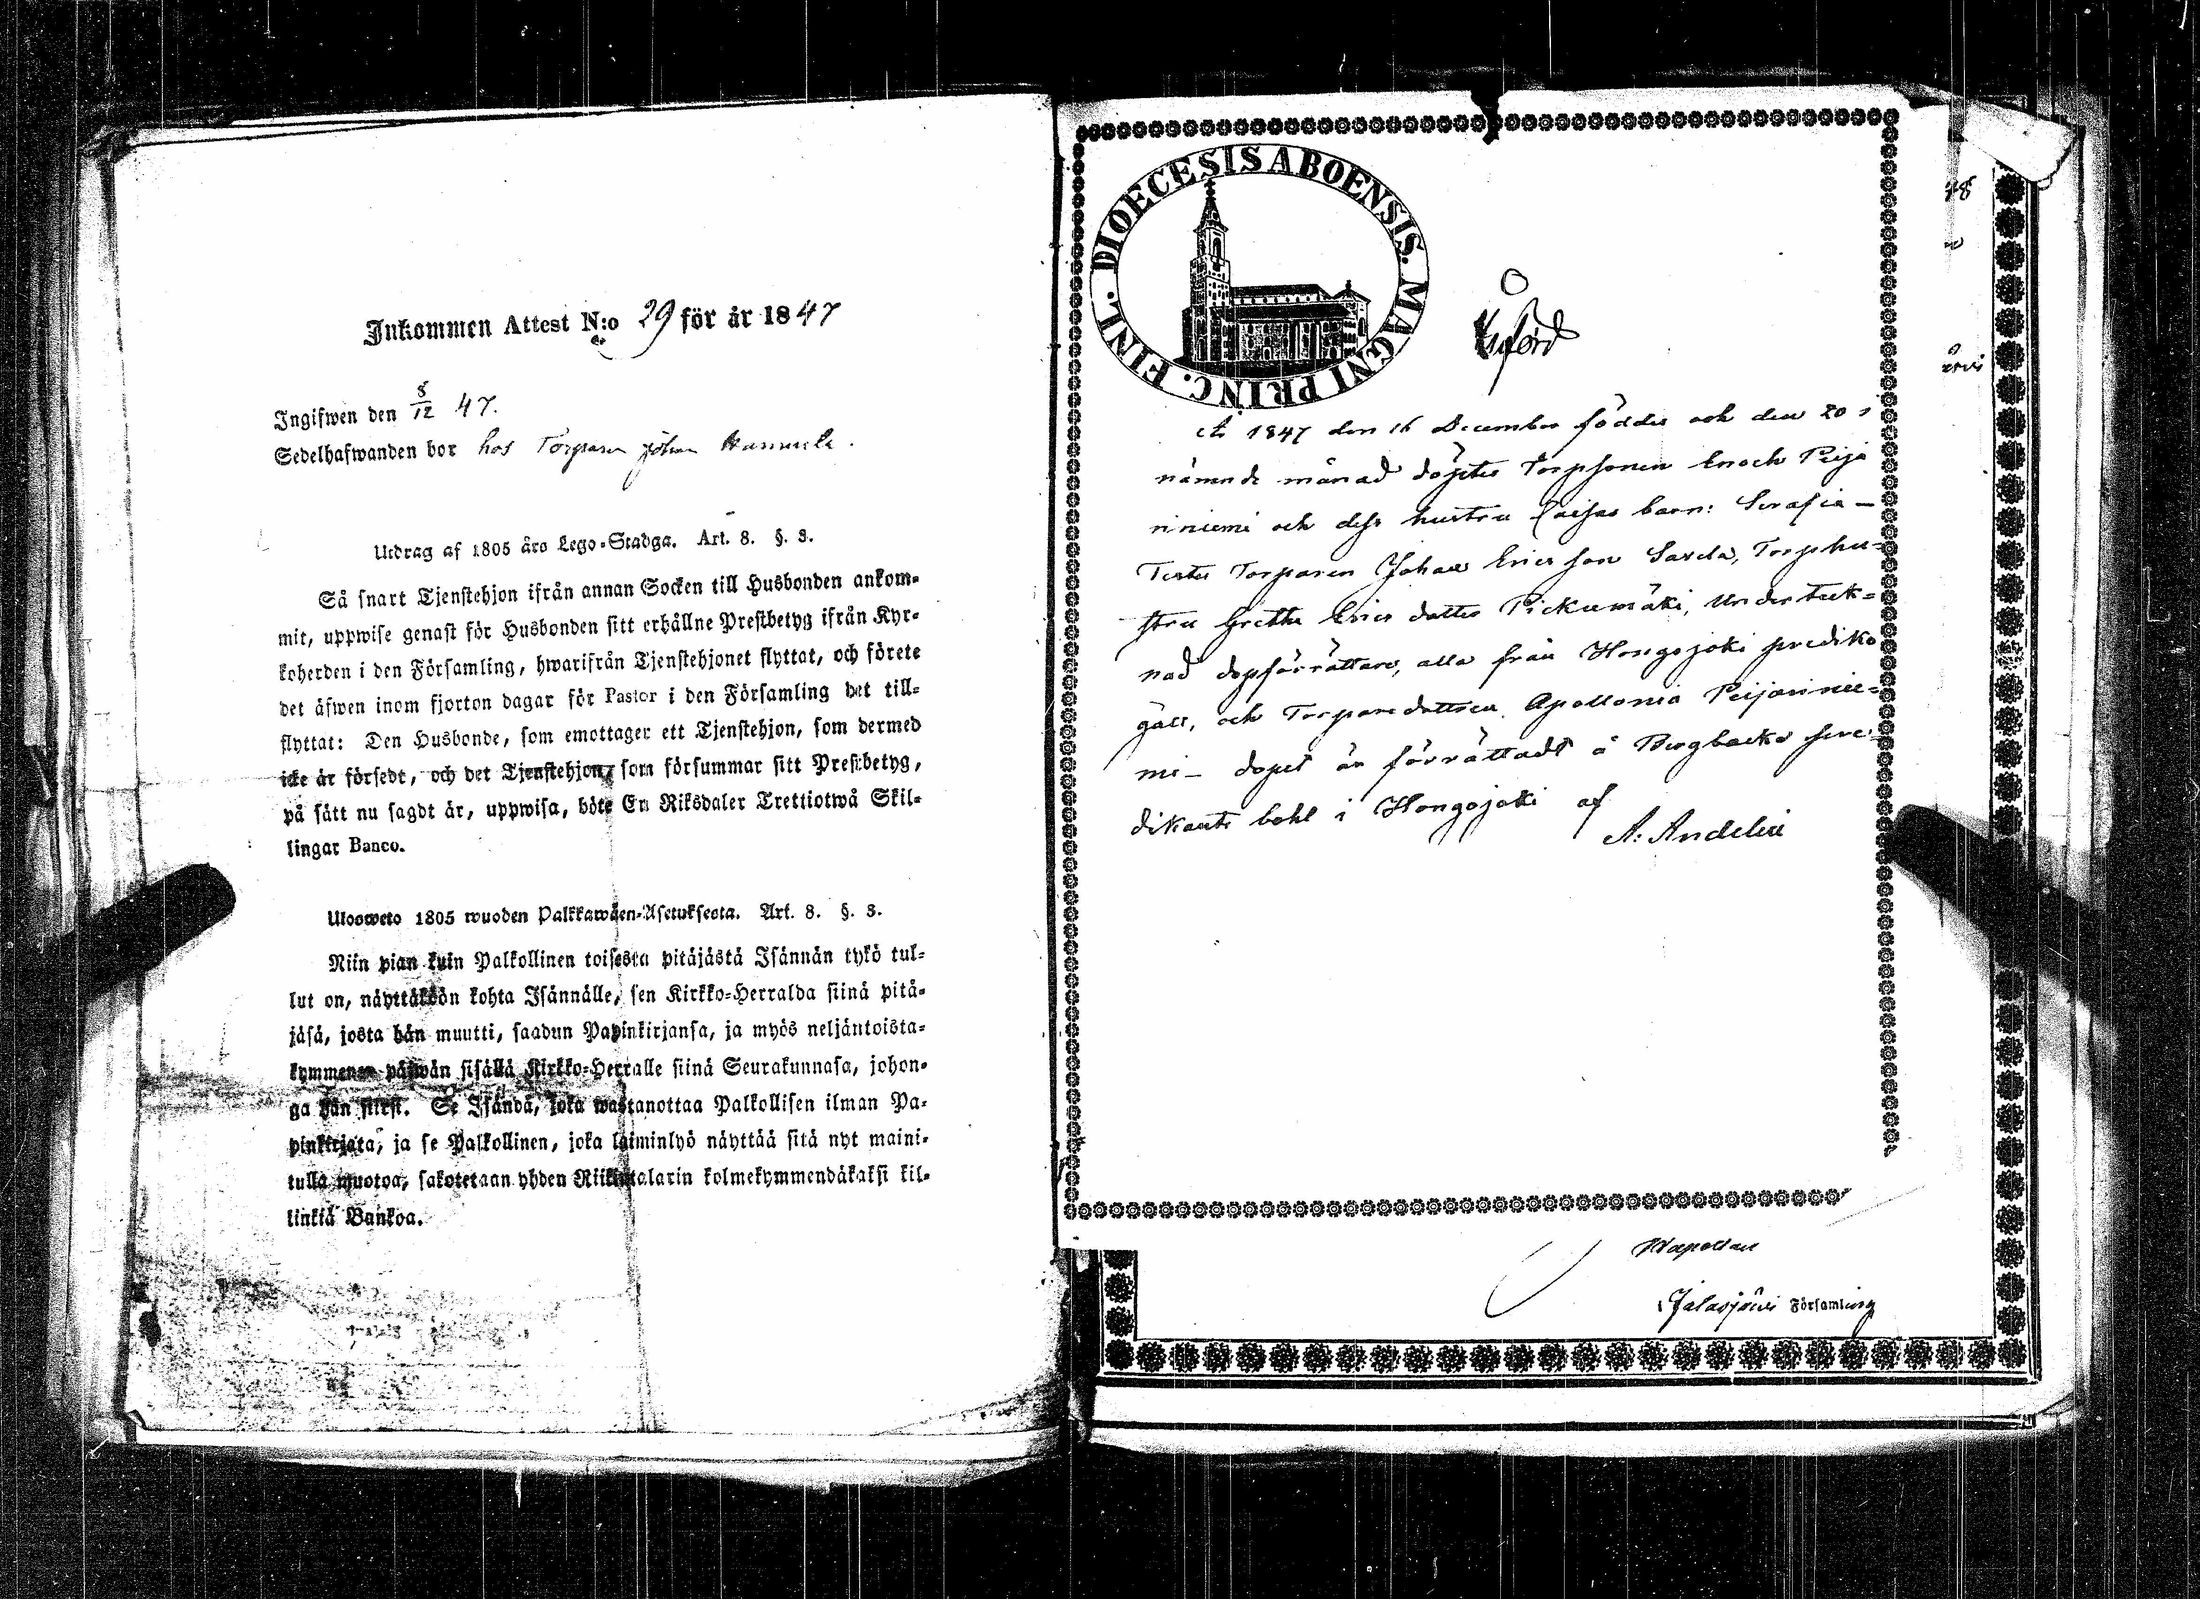 Inkommen Attest N:o 29 för år 1847
Ingifwen den 8/12 47.
Sedelhafwanden bor hos Torparen Johan
Utdrag af 1805 års Lego-Stadga. Art. 8. §. 3.
Så snart Tjenstehjon ifrån annan Socken till Husbonden ankom-
mit, uppwise genast för Husbonden sitt erhållne Prestbetyg ifrån Kyr-
koherden i den Församling, hwarifrån Tjenstehjonet flyttat, och förete
det äfwen inom fjorton dagar för Pastor i den Församling det till-
flyttat: Den Husbonde, som emottager ett Tjenstehjon, som dermed
icke är försedt, och det Tjenstehjon, som försummar sitt Prestbetyg,
på sätt nu sagdt är, uppwisa, böte En Riksdaler Trettiotwå Skil-
lingar Banco.
Ulosweto 1805 wuoden Palkkawäen-Asetuksesta. Art. 8. §. 3.
Niin pian kuin Palkollinen toisesta pitäjästä Isännän tykö tul-
lut on, näyttäköön kohta Isännälle, sen Kirkko-Herralda siinä pitä-
jäsä, josta hän muutti, saadun Papinkirjansa, ja myös neljäntoista-
kymmenen päiwän sisällä Kirkko-Herralle siinä Seurakunnasa, johon-
ga hän siirsi. Se Isändä, joka wastanottaa Palkollisen ilman Pa-
pinkirjata, ja se Palkollinen, joka laiminlyö näyttää sitä nyt maini-
tulla muotoa, sakotetaan yhden Riikintalarin kolmekymmendäkaksi kil-
linkiä Bankoa.
DIOECESIS ABOENSIS. MAGNI PRINC. FINL.
År 1847 den 16 December föddes och den 20 i
nämnde månad döptes Torpsonen Enoch Peija
riniemi och dess hustru Caisas barn: Serafia –
Testes Torparen Johan Ericsson Savela, Torphu-
stru Gretha Ericsdotter Pickumäki, Underteck-
nad dopförrättare, alla från Hongojoki prediko
gäll, och Torparedottren Apollonia Peijarinie-
mi – dopet är förrättadt å Bergbacka pre-
dikants bohl i Hongojoki af
A: Andelin
48
Kapellan
Jalasjärvi Församling